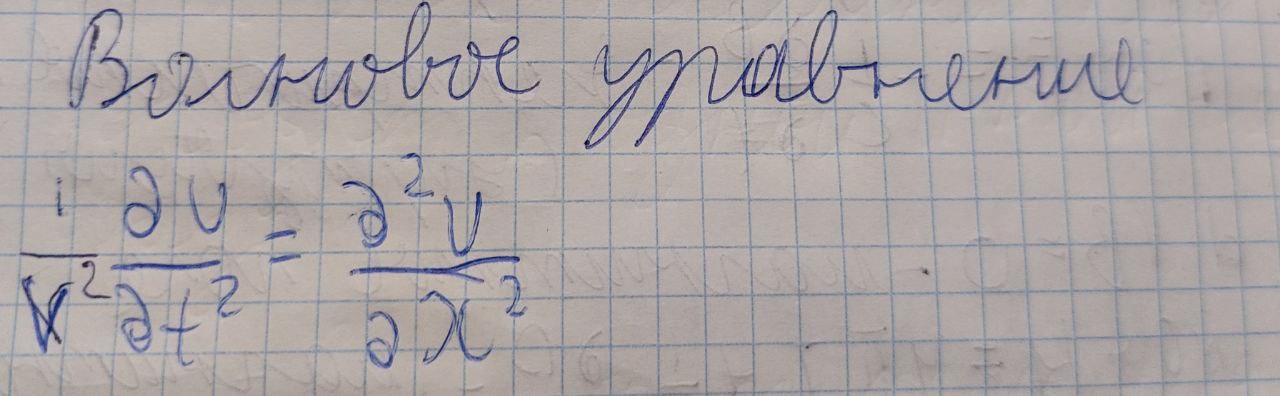 Волновое уравнение
1/v² ∂U/∂t² = ∂²U/∂x²